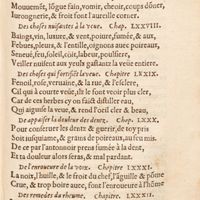 Mouuemẽt, lõgue faim, vomir, cheoir, coups dõner,
Iurongnerie, & froit font l'aureille corner.
Des choses nuisantes à la veue. Chap. LXXVIII.
Baings, vin, luxure, & vent, poiure, fumée, & aux,
Febues, pleurs, & l'entille, oignons auec poireaux,
Seneué, feu, soleil, coït, labeur, poussiere,
Veiller nuisent aux yeulx gastants la veüe entiere.
Des choses qui fortifiẽt la veue. Chapitre LXXIX.
Fenoil, rose, veruaine, & la rue, & l'esclere,
Cil qui à courte veüe, s'ilt le font voir plus cler,
Car de ces herbes cy on faict distiller eau,
Qui aiguise la veue, & rend l'oeil cler & beau.
De appaiser la douleur des dents. Chap. LXXX.
Pour conseruer les dents & guerir, de toy pris
Soit iusquiame, & grains de poireaux, au feu mis.
De ce par l'antonnoir prens fumée à la dent,
Et ta douleur alors seras, & mal pardant.
De l'enroueure de la voix. Chapitre LXXXI.
La noix, l'huille, & le froid du chef, l'aguille & põme
Crue, & trop boire auec, font l'enroueure à l'hõme
Des remedes du rheume. Chapitre LXXXII.